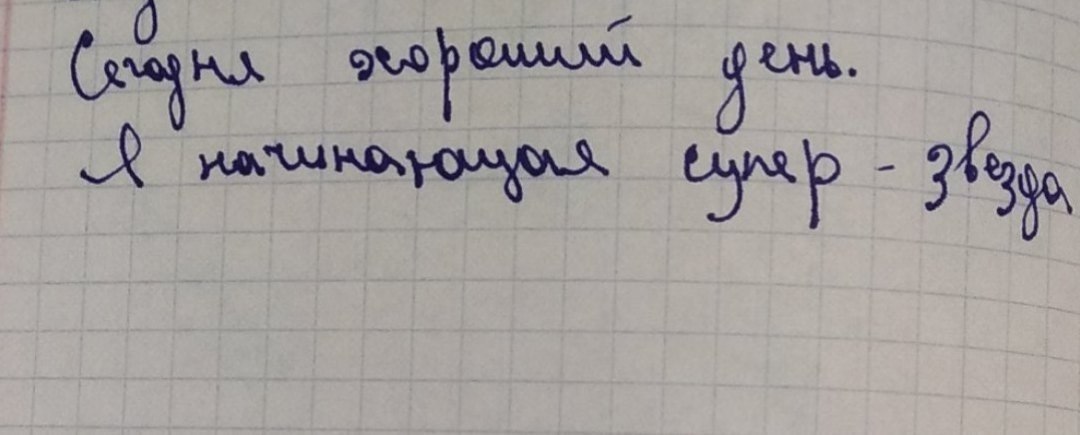 Сегодня хороший день.
Я начинающая супер - звезда